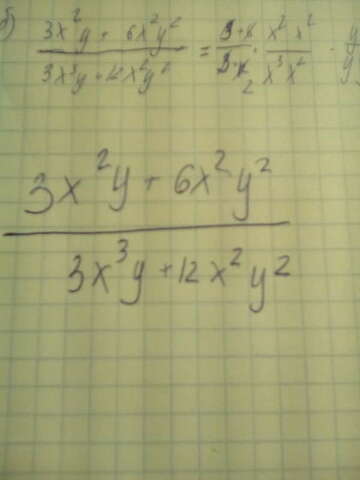 б) 3x²y + 6x²y² / 3x³y + 12x²y² = 3+6 / 3+12 · x² x² / x³ x² · y
3x²y + 6x²y²
3x³y + 12x²y²